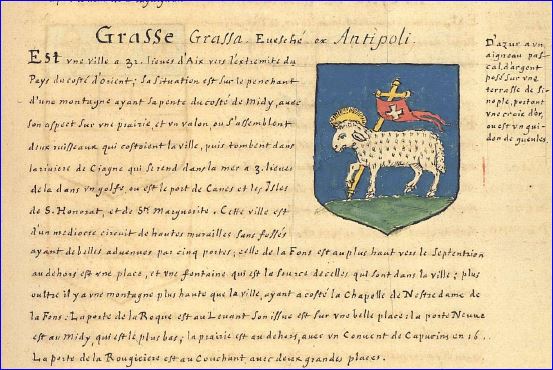 Grasse Grassa. Evesché ex Antipoli.
Est vne ville a 32. lieues d'Aix vers l'extremite du
Pays du costé d'orient; sa situation est sur le penchant
d'une montagne ayant sa pente du costé de Midy, avec
son aspect sur vne prairie, et vn valon, ou s'assemblent
deux ruisseaux qui costoient la ville, puis tombent dans
la riuiere de Ciagne qui se rend dans la mer a 3. lieues
de la dans vn golfe, ou est le port de Canes et les Isles
de S. Honorat, et de Ste Marguerite. Cette ville est
d'un mediocre circuit de hautes murailles sans fossés
ayant de belles advenues par cinq portes; celle de la Fons est au plus haut vers le Septentrion
au dehors est vne place, et vne fontaine qui est la source de celles qui sont dans la ville; plus
oultre il y a vne montagne plus haute que la ville, ayant a costé la Chapelle de Nostre dame de
la Fons: La porte de la Roque est au Leuant son issue est sur vne belle place: la porte Neuue
est au Midy, qui est le plus bas; la prairie est au dehors, avec vn Convent de Capucins en 16 .
La porte de la Rougiciere est au Couchant avec deux grandes places.
D'azur a vn
aigneau pas-
cal d'argent
posé sur vne
terrasse de si-
nople, portant
vne croix d'or,
ou est vn gui-
don de gueules.